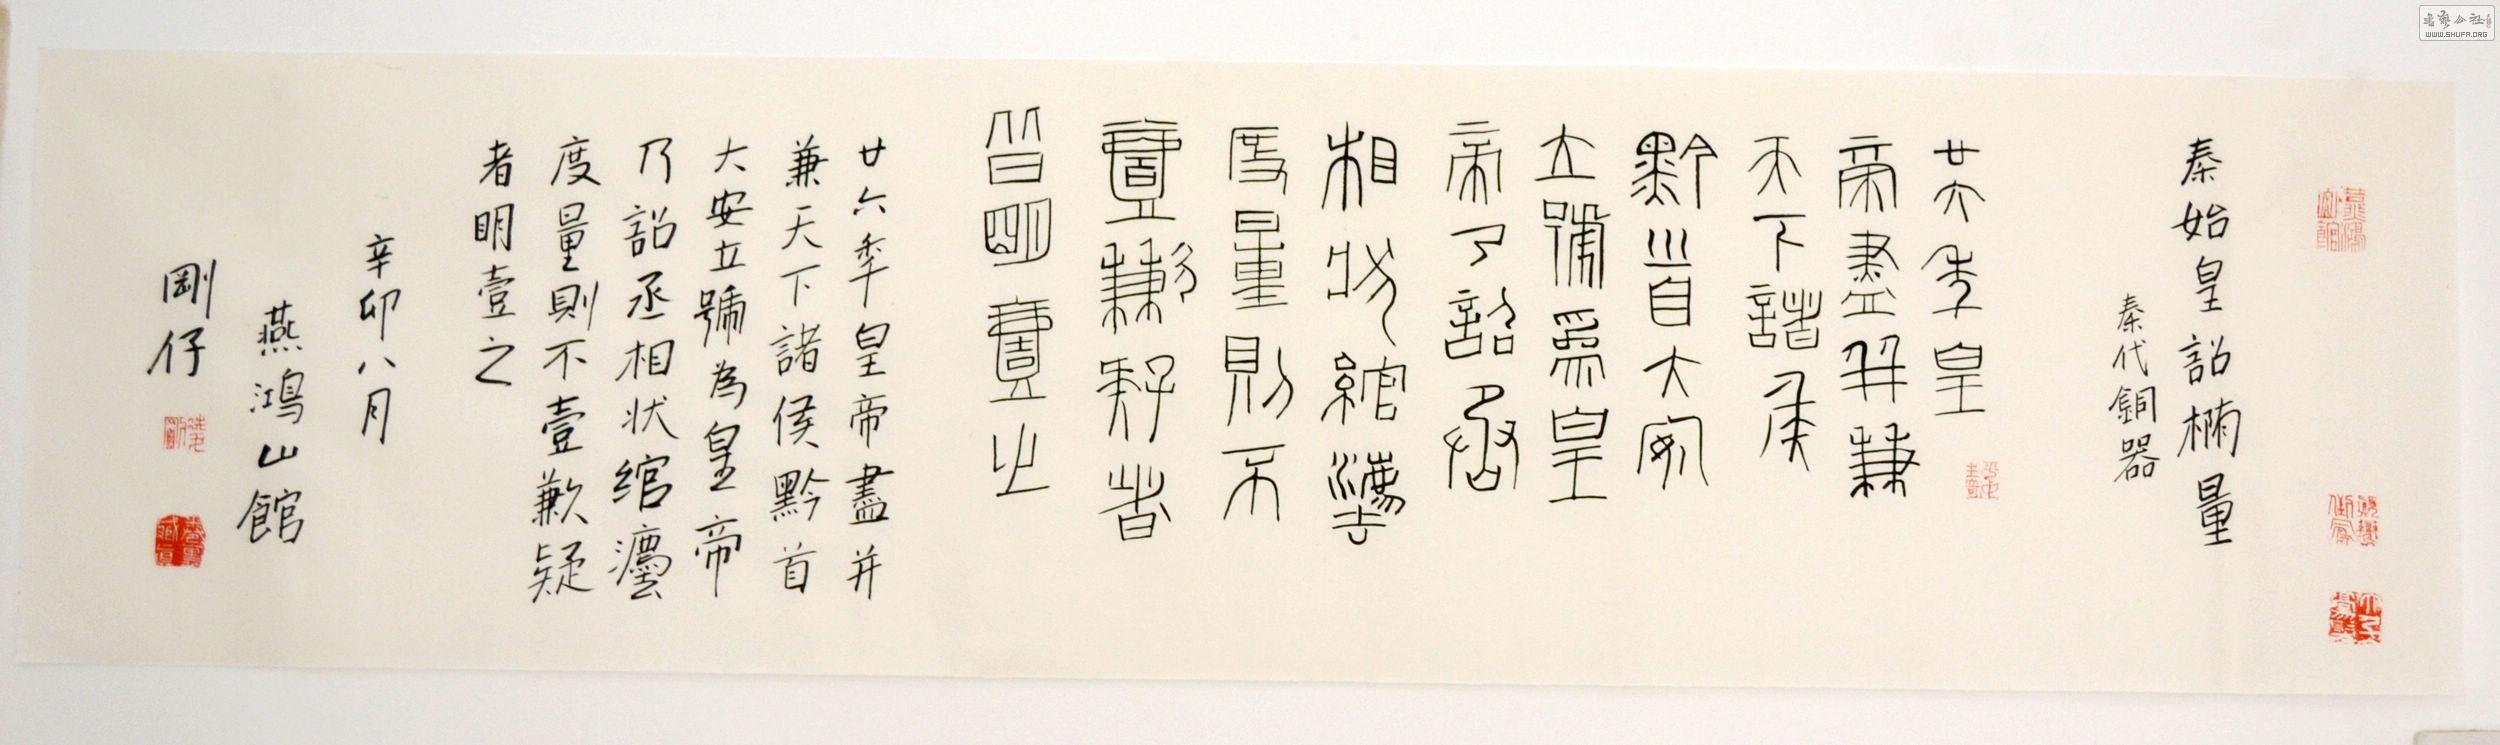 秦始皇詔椭量
秦代銅器
廿六年皇
帝盡并兼
天下諸侯
黔首大安
立號為皇
帝乃詔丞
相狀綰灋
度量則不
壹歉疑者
皆明壹之
廿六秊皇帝盡并
兼天下諸侯黔首
大安立號為皇帝
乃詔丞相状綰灋
度量則不壹歉疑
者明壹之
辛卯八月
燕鴻山館
剛仔
WWW.SHUFA.ORG